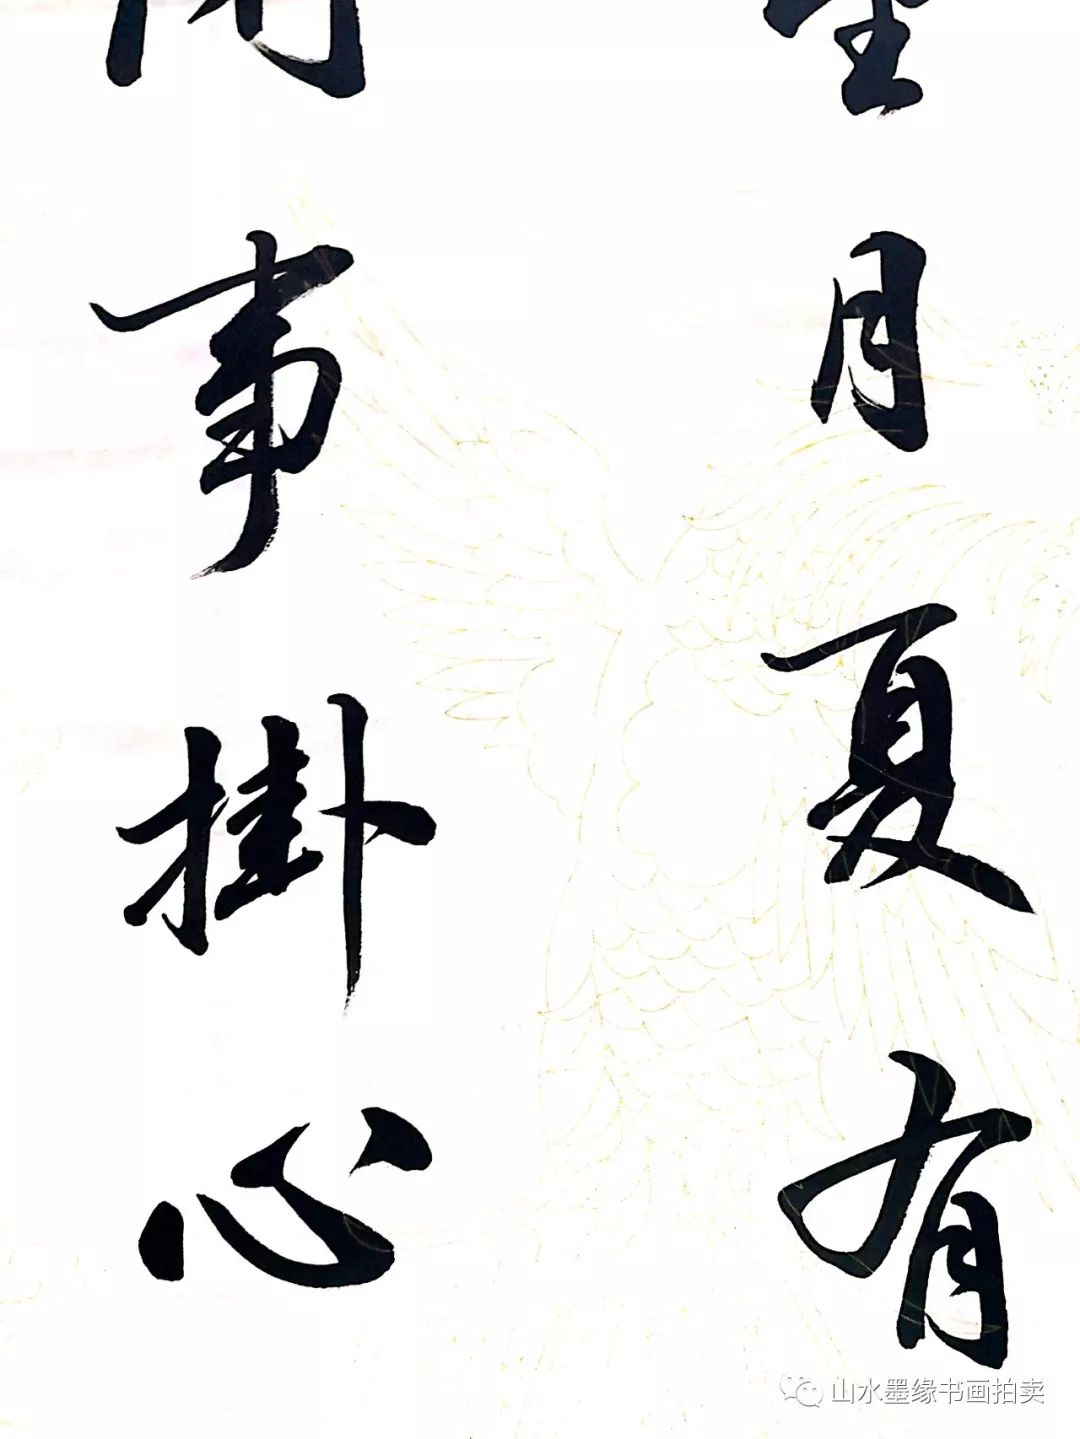 月夏有
事掛心
山水墨缘书画拍卖